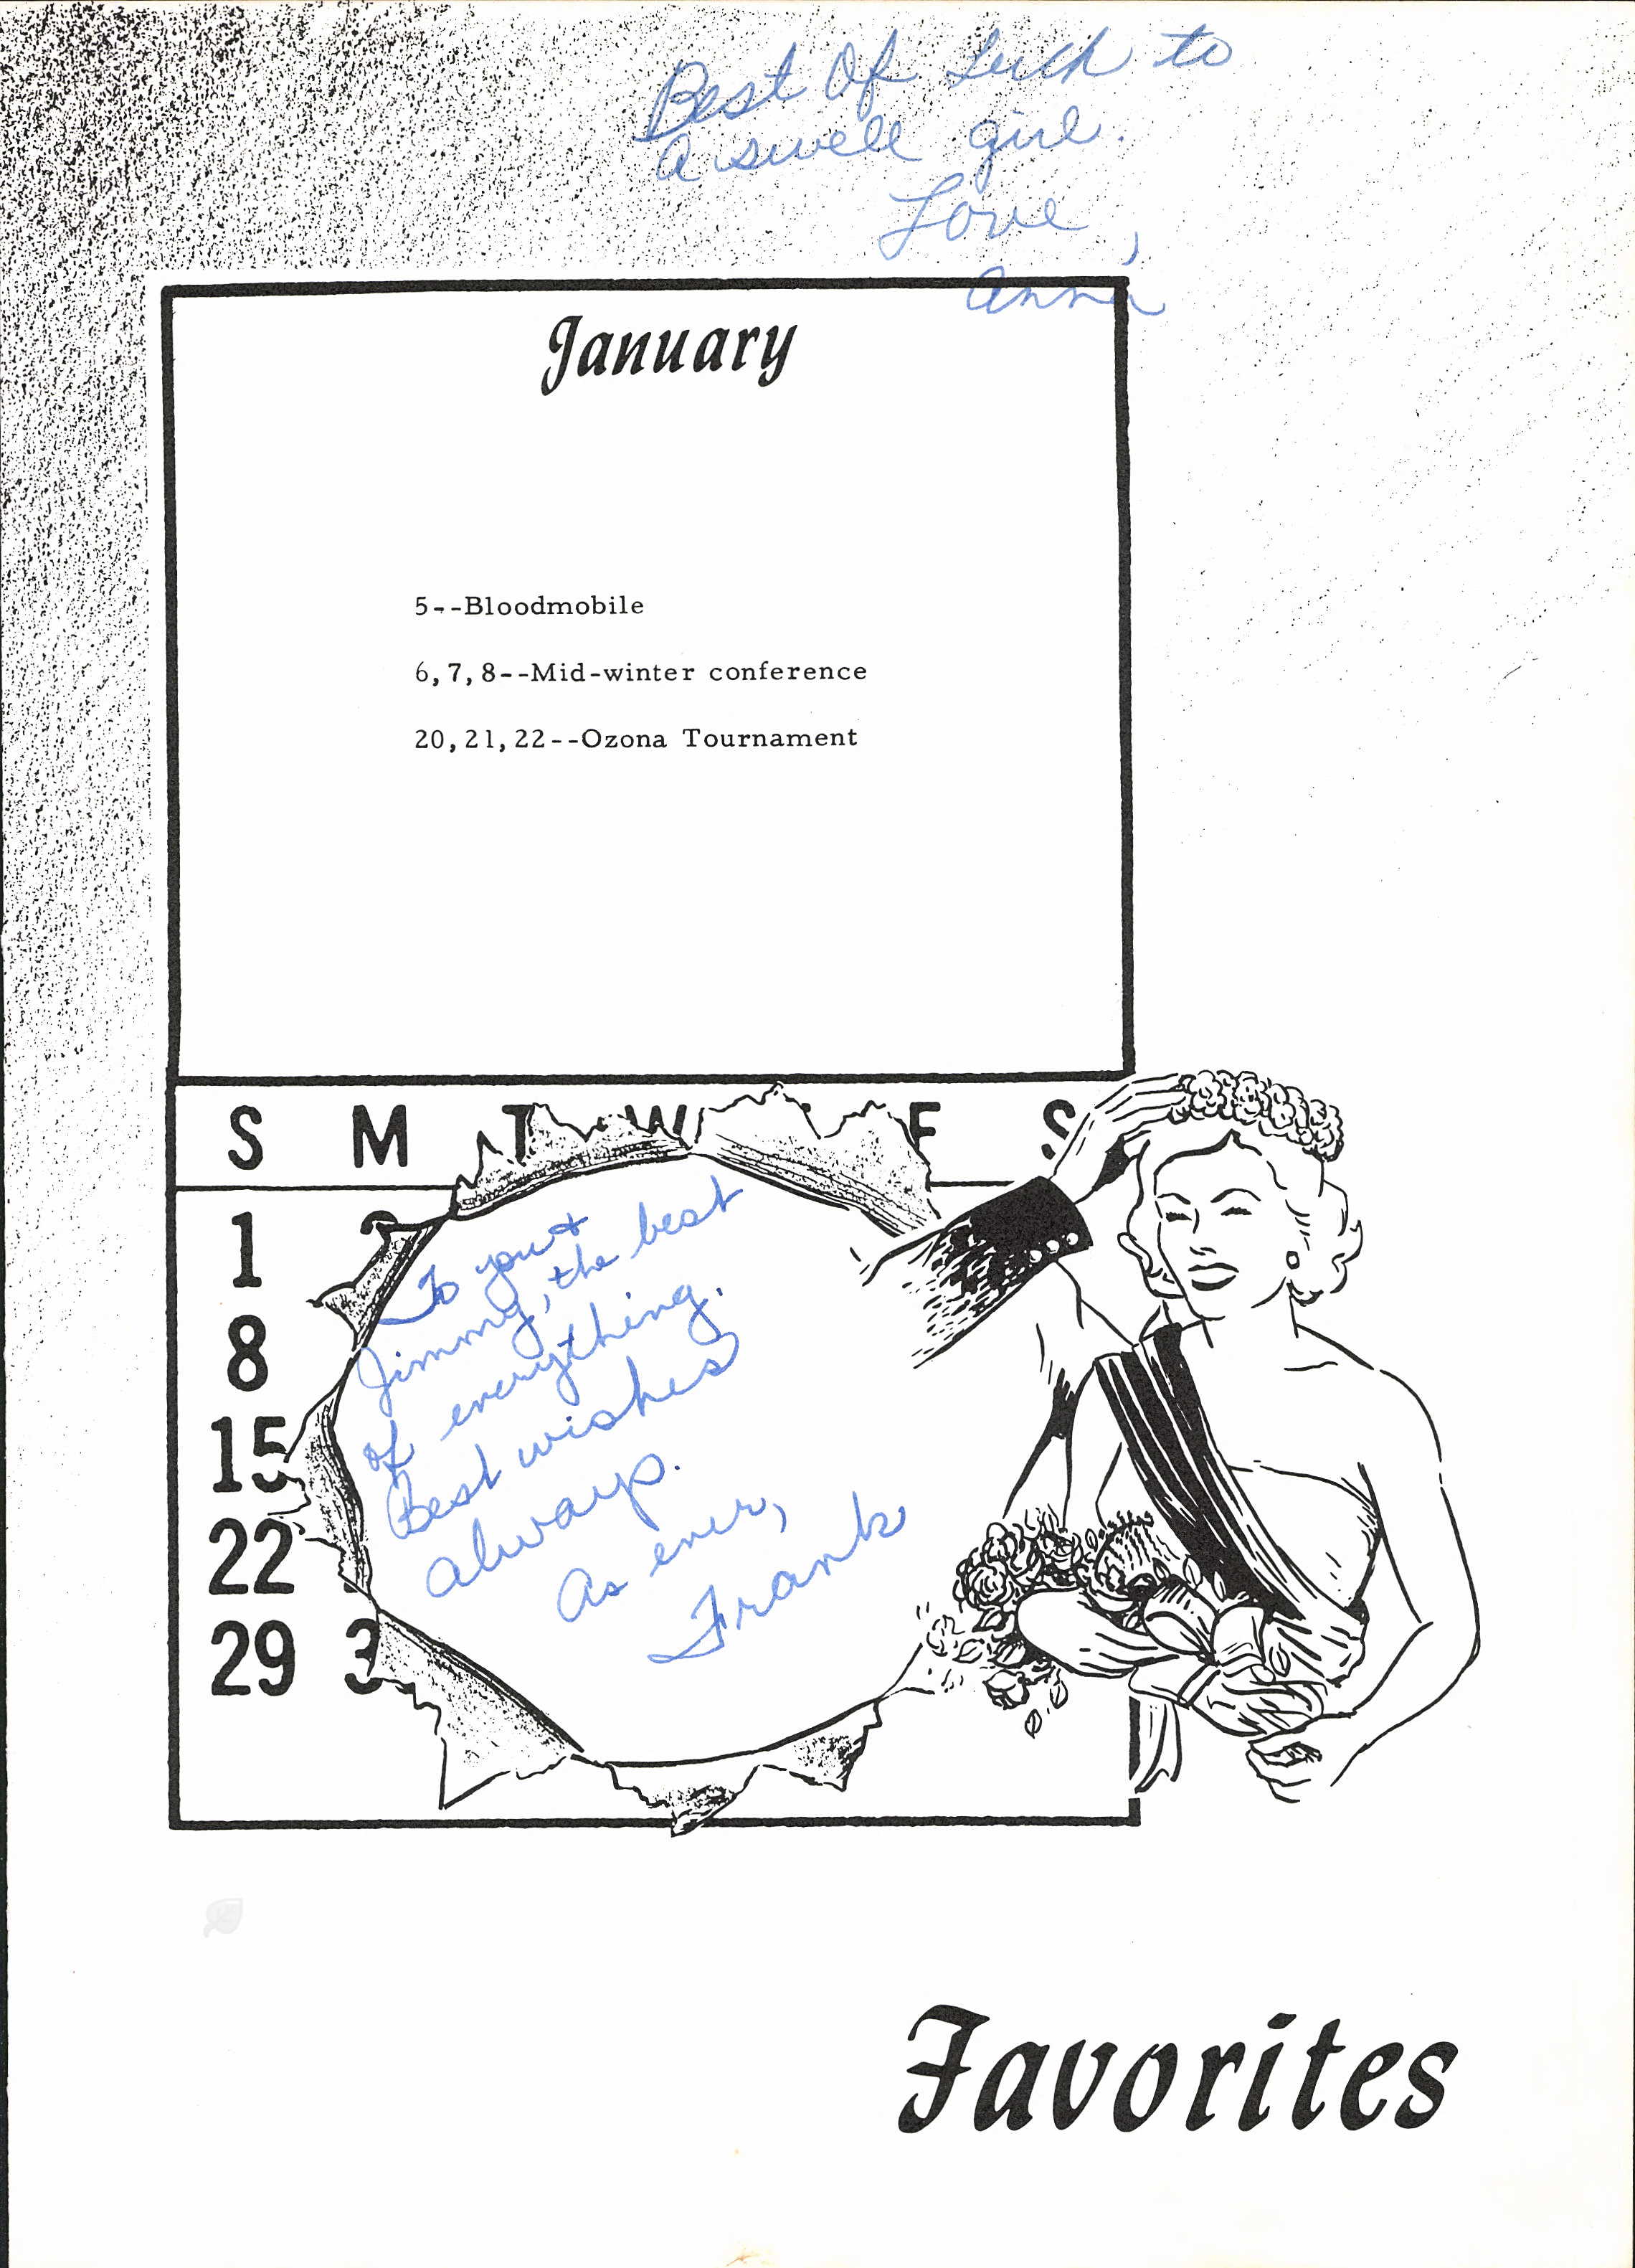 Best Of Luck to
a swell girl.
Love,
Anna
January
5--Bloodmobile
6,7,8--Mid-winter conference
20,21,22--Ozona Tournament
S M T W F S
1 2
8
15
22
29 3
To you &
Jimmy, the best
of everything.
Best wishes
always.
As ever,
Frank
Favorites